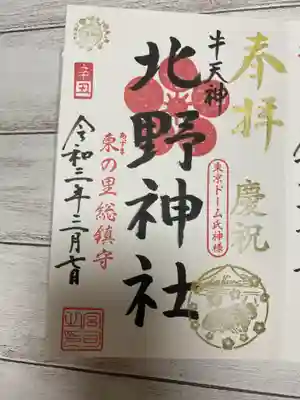 奉拝 慶祝
牛天神
北野神社
東京ドーム氏神様
あずま
東の里総鎮守
辛丑
令和三年二月七日